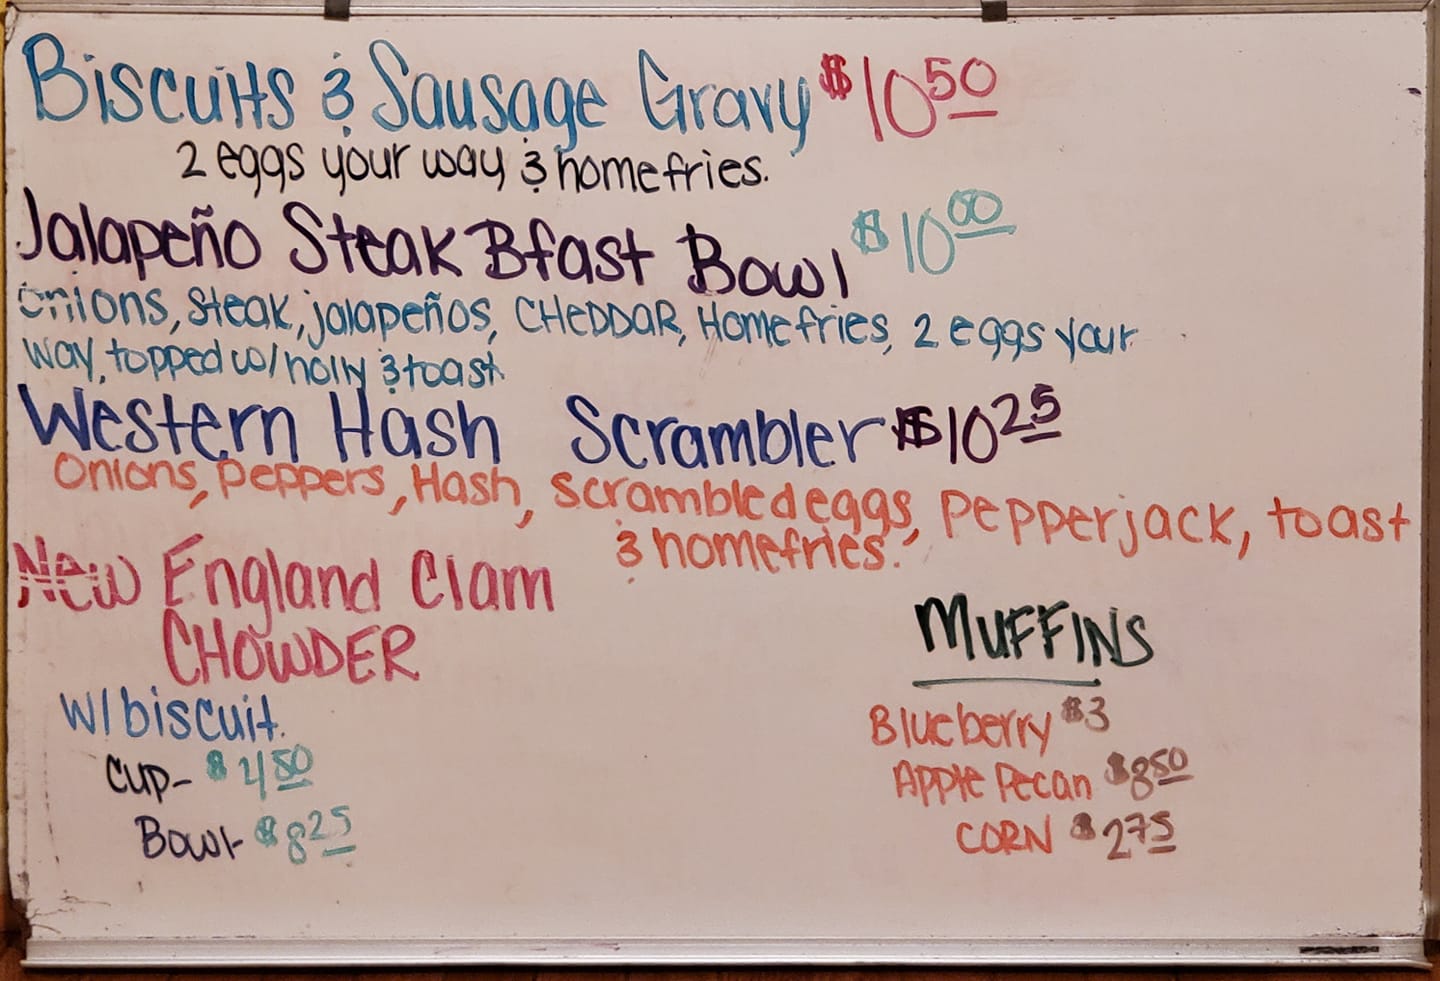 Biscuits & Sausage Gravy $10 50
2 eggs your way & homefries.
Jalapeño Steak Bfast Bowl $10 00
onions, steak, jalapeños, CHeDDAR, Homefries, 2 eggs your
way, topped w/ holly & toast.
Western Hash Scrambler $10 25
Onions, Peppers, Hash, scrambled eggs, Pepperjack, toast
& homefries.
New England Clam
CHOWDER
W/ biscuit.
Cup- $4 50
Bowl- $8 25
MUFFINS
Blueberry $3
Apple Pecan $8 50
CORN $2 75